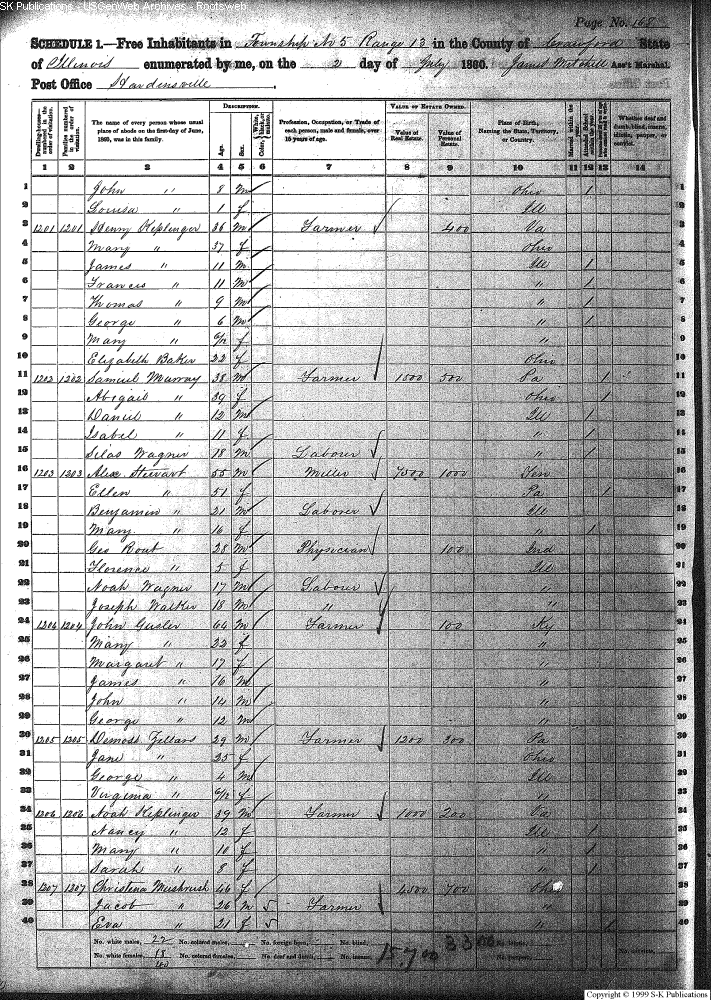 SK Publications - USGenWeb Archives - Rootsweb
Page No. 168
SCHEDULE 1.—Free Inhabitants in Township No 5 Range 13 in the County of Crawford State
of Illinois enumerated by me, on the 2 day of July 1860. James Mitchell Ass't Marshal.
Post Office Hardinsville
DESCRIPTION. VALUE OF ESTATE OWNED.
Dwelling-houses—numbered in the order of visitation. Families numbered in the order of visitation. The name of every person whose usual place of abode on the first day of June, 1860, was in this family. Age. Sex. Color, White, black, or mulatto. Profession, Occupation, or Trade of each person, male and female, over 15 years of age. Value of Real Estate. Value of Personal Estate. Place of Birth, Naming the State, Territory, or Country. Married within the year. Attended School within the year. Whether deaf and dumb, blind, insane, idiotic, pauper, or convict.
1 2 3 4 5 6 7 8 9 10 11 12 13 14
1 John " 8 m Ohio 1 1
2 Louisa " 1 f Ill 2
3 1201 1201 Henry Keplinger 36 m Farmer 400 Va 3
4 Mary " 37 f Ohio 4
5 James " 11 m Ill 1 5
6 Francis " 11 m " 1 6
7 Thomas " 9 m " 1 7
8 George " 6 m " 1 8
9 Mary " 6/12 f " 9
10 Elizabeth Baker 22 f Ohio 10
11 1202 1202 Samuel Murray 38 m Farmer 1500 500 Pa 1 11
12 Abigail " 39 f Ohio 1 12
13 Daniel " 12 m Ill 1 13
14 Isabel " 11 f " 1 14
15 Silas Wagner 18 m Labourer " 1 15
16 1203 1203 Alex Stewart 55 m Miller 7000 1000 Ten 16
17 Ellen " 51 f Pa 1 17
18 Benjamin " 21 m Labourer Ill 18
19 Mary " 16 f " 1 19
20 Geo Rout 28 m Physician 100 Ind 20
21 Florence " 5 f Ill 21
22 Noah Wagner 17 m Labourer " 22
23 Joseph Walker 18 m " " 23
24 1204 1204 John Gusler 64 m Farmer 100 Ky 24
25 Mary " 22 f " 25
26 Margaret " 17 f " 26
27 James " 16 m " 27
28 John " 14 m " 28
29 George " 12 m " 29
30 1205 1205 Demoss Zellars 29 m Farmer 1200 300 Pa 30
31 Jane " 25 f Ohio 31
32 George " 4 m Ill 32
33 Virginia " 6/12 f " 33
34 1206 1206 Noah Keplinger 39 m Farmer 1000 200 Va 34
35 Nancy " 12 f Ill 1 35
36 Mary " 10 f " 1 36
37 Sarah " 8 f " 1 37
38 1207 1207 Christena Mushrush 46 f 4500 700 Ohio 38
39 Jacob " 26 m 5 Farmer " 39
40 Eva " 21 f 5 " 1 40
No. white males, 22 No. colored males, No. foreign born, No. blind,
No. white females, 18 No. colored females, No. deaf and dumb, No. insane, 15,700 3300 No. idiotic, No. paupers, No. convicts,
40
Copyright © 1999 S-K Publications